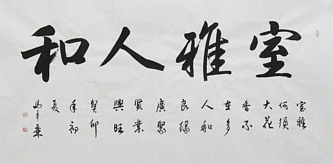 室雅人和
室雅
何須
大花
香不
在多
人和
良緣
廣聚
業
興旺
癸卯
年初
夏